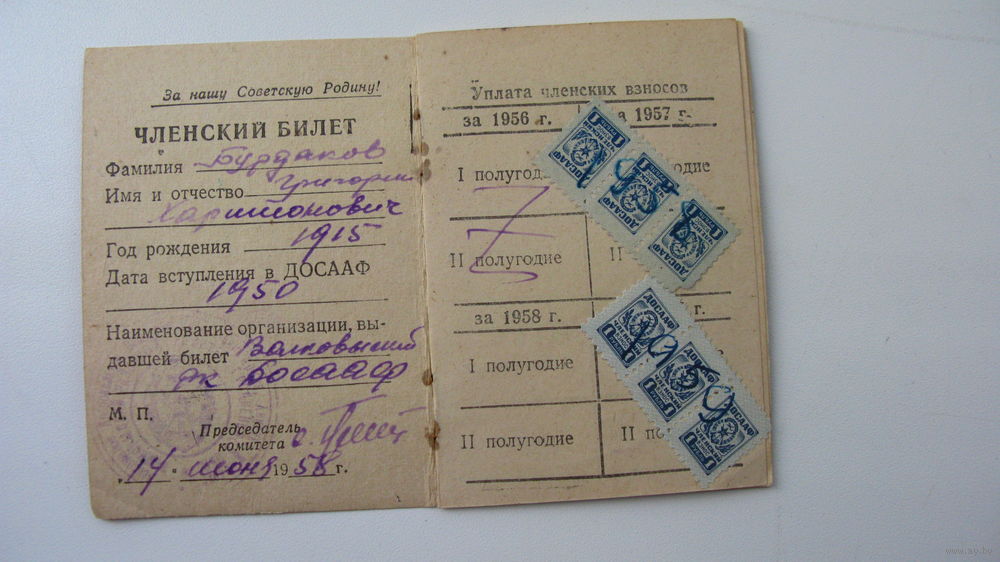 За нашу Советскую Родину!
ЧЛЕНСКИЙ БИЛЕТ
Фамилия Бурдаков
Имя и отчество Григорий
Харитонович
Год рождения 1915
Дата вступления в ДОСААФ
1950
Наименование организации, вы-
давшей билет Волковысский
рк ДОСААФ
М. П.
Председатель
комитета
„14 " июня 1958 г.
Уплата членских взносов
за 1956 г.
а 1957 г.
I полугод
годие
II полугодие
II
за 1958 г.
г.
I полугодие
II полугодие
II по
ДОСААФ
ЧЛЕНСКИЙ
ВЗНОС
1
РУБЛЬ
1
ДОСААФ
1
ДОСААФ
1
1958
ДОСААФ
ЧЛЕНСКИЙ
ВЗНОС
1 РУБЛЬ
ДОСААФ
ЧЛЕНСКИЙ
1 РУБЛЬ
ДОСААФ
ЧЛЕНСКИЙ
1 РУБЛЬ
1959
www.ay.by